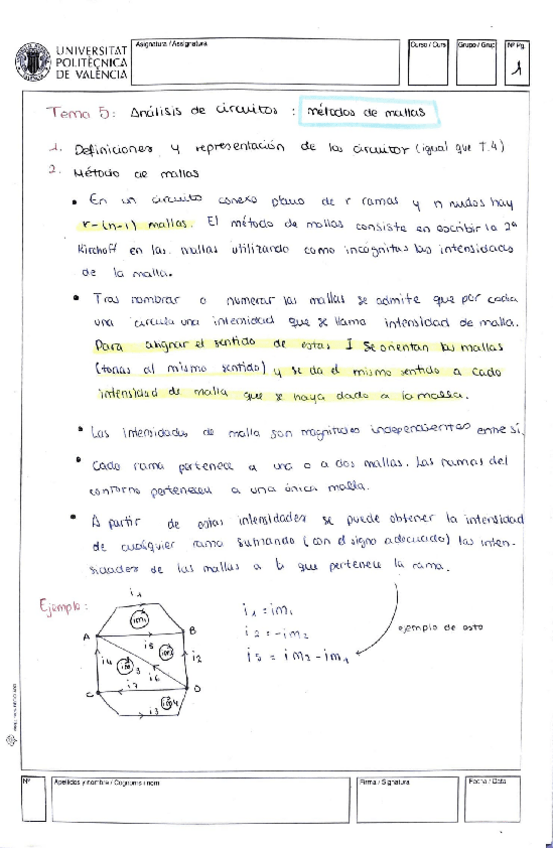 UNIVERSITAT
POLITÈCNICA
DE VALÈNCIA
Asignatura / Assignatura
Curso / Curs
Grupo / Grup
Nº Pg.
1
Tema 5: Análisis de circuitos: métodos de mallas
1. Definiciones y representación de los circuitos (igual que T.4)
2. Método de mallas
• En un circuito conexo plano de r ramas y n nudos hay
r-(n-1) mallas. El método de mallas consiste en escribir la 2ª
Kirchoff en las mallas utilizando como incógnitas las intensidades
de la malla.
• Tras nombrar o numerar las mallas se admite que por cada
una circula una intensidad que se llama intensidad de malla.
Para asignar el sentido de estas I se orientan las mallas
(todas al mismo sentido) y se da el mismo sentido a cada
intensidad de malla que se haya dado a la malla.
• Las intensidades de malla son magnitudes independientes entre sí.
• Cada rama pertenece a una o a dos mallas. Las ramas del
contorno pertenecen a una única malla.
• A partir de estas intensidades se puede obtener la intensidad
de cualquier rama sumando (con el signo adecuado) las inten-
sidades de las mallas a la que pertenece la rama.
Ejemplo:
i1
im1
A
i5
B
i4
im3
im2
i2
i6
C
i7
D
i3
im4
i1 = im1
i2 = -im2
i5 = im2 - im1
ejemplo de esto
Nº
Apellidos y nombre / Cognoms i nom
Firma / Signatura
Fecha / Data